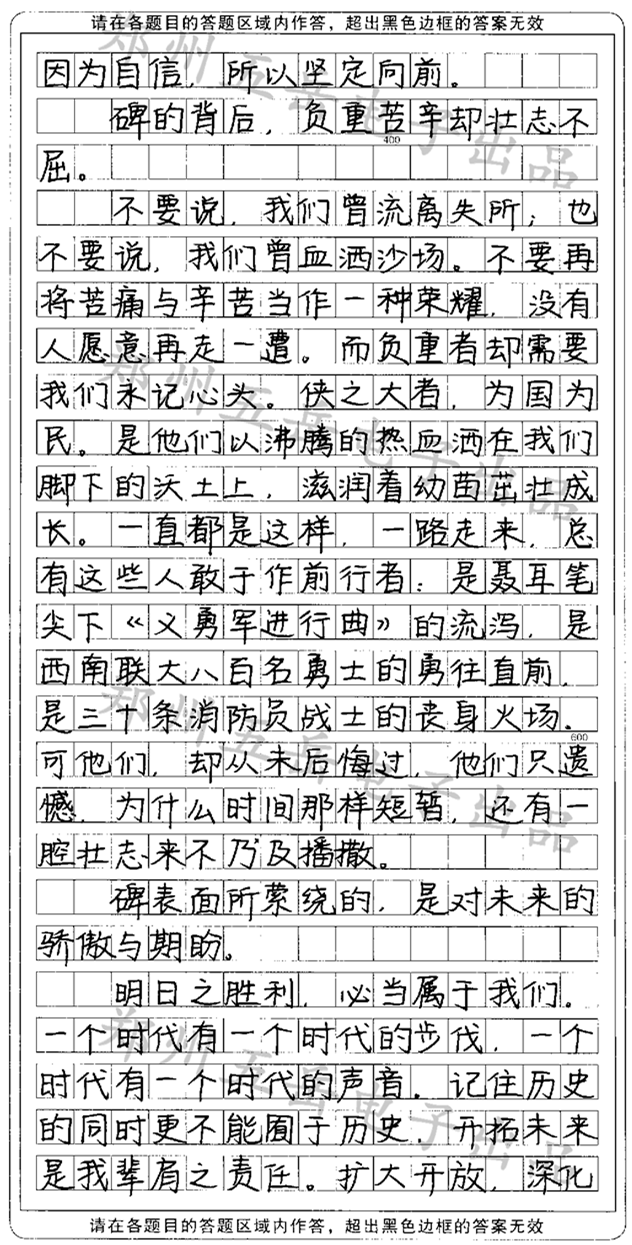 请在各题目的答题区域内作答，超出黑色边框的答案无效
因为自信，所以坚定向前。
碑的背后，负重苦辛却壮志不
400
屈。
不要说，我们曾流离失所；也
不要说，我们曾血洒沙场。不要再
将苦痛与辛苦当作一种荣耀，没有
人愿意再走一遭。而负重者却需要
我们永记心头。侠之大者，为国为
民。是他们以沸腾的热血洒在我们
脚下的沃土上，滋润着幼苗茁壮成
长。一直都是这样，一路走来，总
有这些人敢于作前行者：是聂耳笔
尖下《义勇军进行曲》的流泻，是
西南联大八百名勇士的勇往直前，
是三十条消防员战士的丧身火场。
600
可他们，却从未后悔过，他们只遗
憾，为什么时间那样短暂，还有一
腔壮志来不乃及播撒。
碑表面所萦绕的，是对未来的
骄傲与期盼。
明日之胜利，必当属于我们。
一个时代有一个时代的步伐，一个
时代有一个时代的声音。记住历史
的同时更不能囿于历史，开拓未来
是我辈肩之责任。扩大开放，深化
请在各题目的答题区域内作答，超出黑色边框的答案无效
郑州五岳电子出品
郑州五岳电子出品
郑州五岳电子出品
郑州五岳电子出品